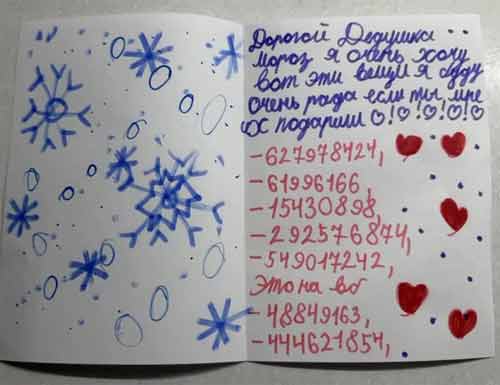 Дорогой Дедушка
мороз я очень хочу
вот эти вещи я буду
очень рада если ты мне
их подариш ♡!♡!♡!♡!♡
-627978424,
-61996166,
-15430898,
-292576874,
-549017242,
Это на вб
-48849163,
-444621854,